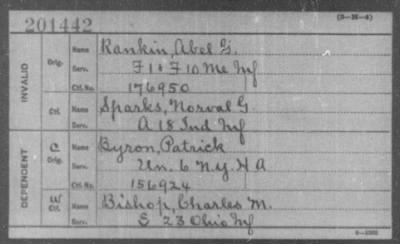 201442
(3-35-4)
INVALID
Orig. Name Rankin, Abel G.
Serv. F 1 & F 10 Me Inf
Ctf. No. 176950
Ctf. Name Sparks, Norval G.
Serv. A 18 Ind Inf
DEPENDENT
C Orig. Name Byron, Patrick
Serv. Un. 6 N.Y. H A
Ctf. No. 156924
W Ctf. Name Bishop, Charles M.
Serv. E 23 Ohio Inf